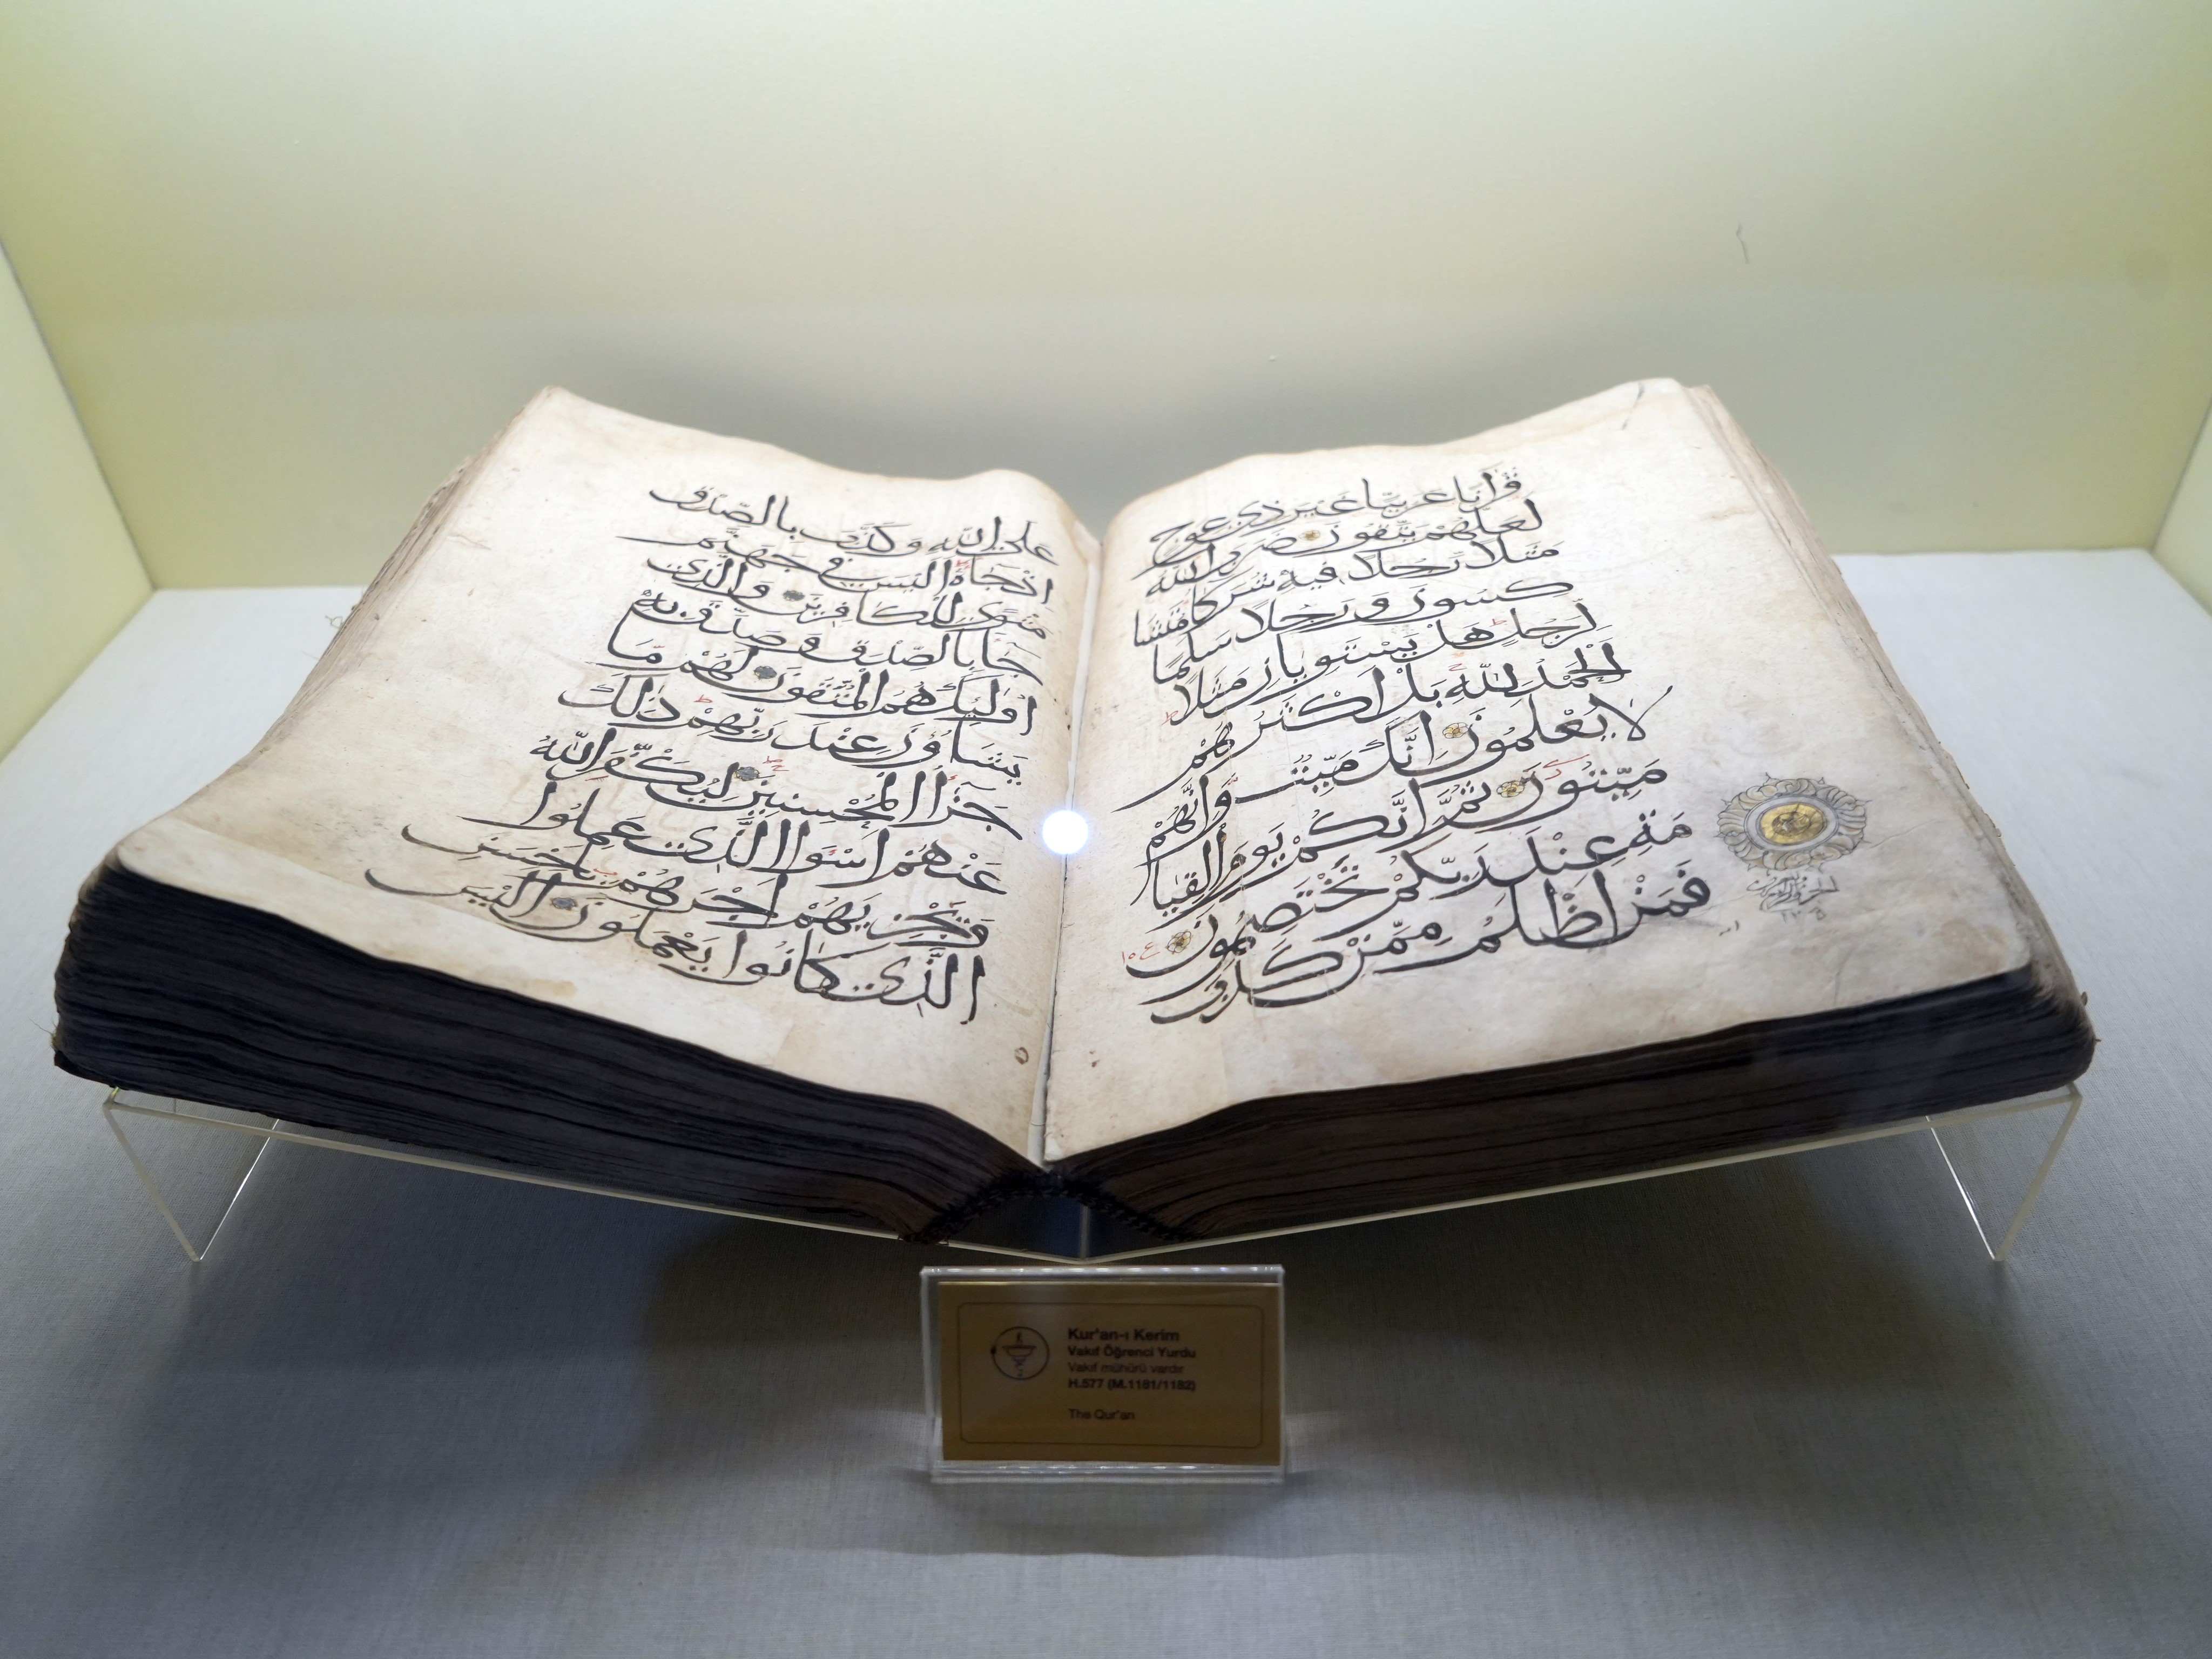 قرانا عربيا غير ذي عوج
لعلهم يتقون ضرب الله
مثلا رجلا فيه شركا متشا
كسون ورجلا سلما
لرجل هل يستويان مثلا
الحمد لله بل اكثرهم
لا يعلمون انك ميت وانهم
ميتون ثم انكم يوم القيا
مة عند ربكم تختصمون
فمن اظلم ممن كذب
على الله وكذب بالصدق
اذ جاه اليس في جهنم
مثوى للكافرين والذي
جا بالصدق وصدق به
اوليك هم المتقون لهم ما
يشاون عند ربهم ذلك
جزا المحسنين ليكفر الله
عنهم اسوا الذي عملوا
ويجزيهم اجرهم باحسن
الذي كانوا يعملون اليس
Kur'an-ı Kerim
Vakıf Öğrenci Yurdu
Vakıf mühürü vardır
H.577 (M.1181/1182)
The Qur'an